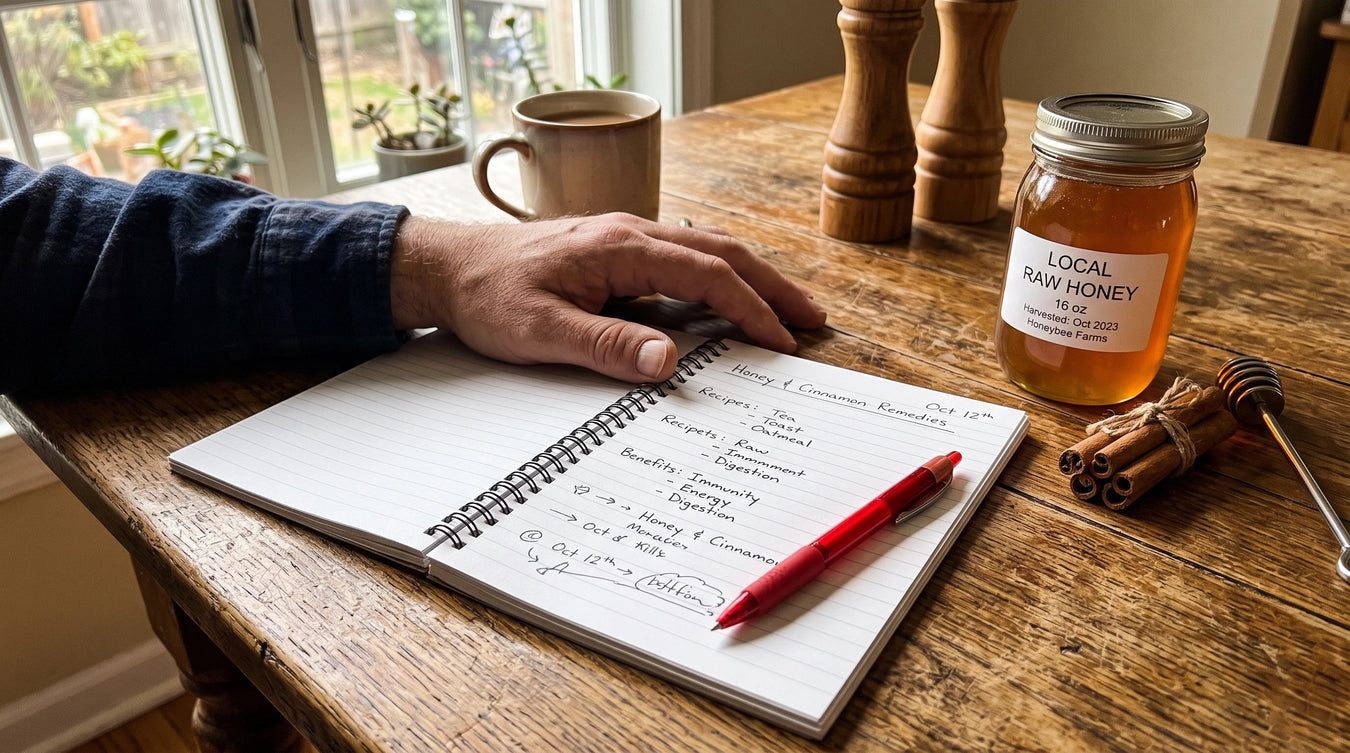 Honey & Cinnamon Remedies
Oct 12th
Recipes: Tea
Toast
- Oatmeal
Recipets: Raw
- Immmment
- Digestion
Benefits: Immunity
- Energy
- Digestion
→ Honey & Cinnamon
→ Oct & Kills
@ Oct 12th →
LOCAL
RAW HONEY
16 oz
Harvested: Oct 2023
Honeybee Farms